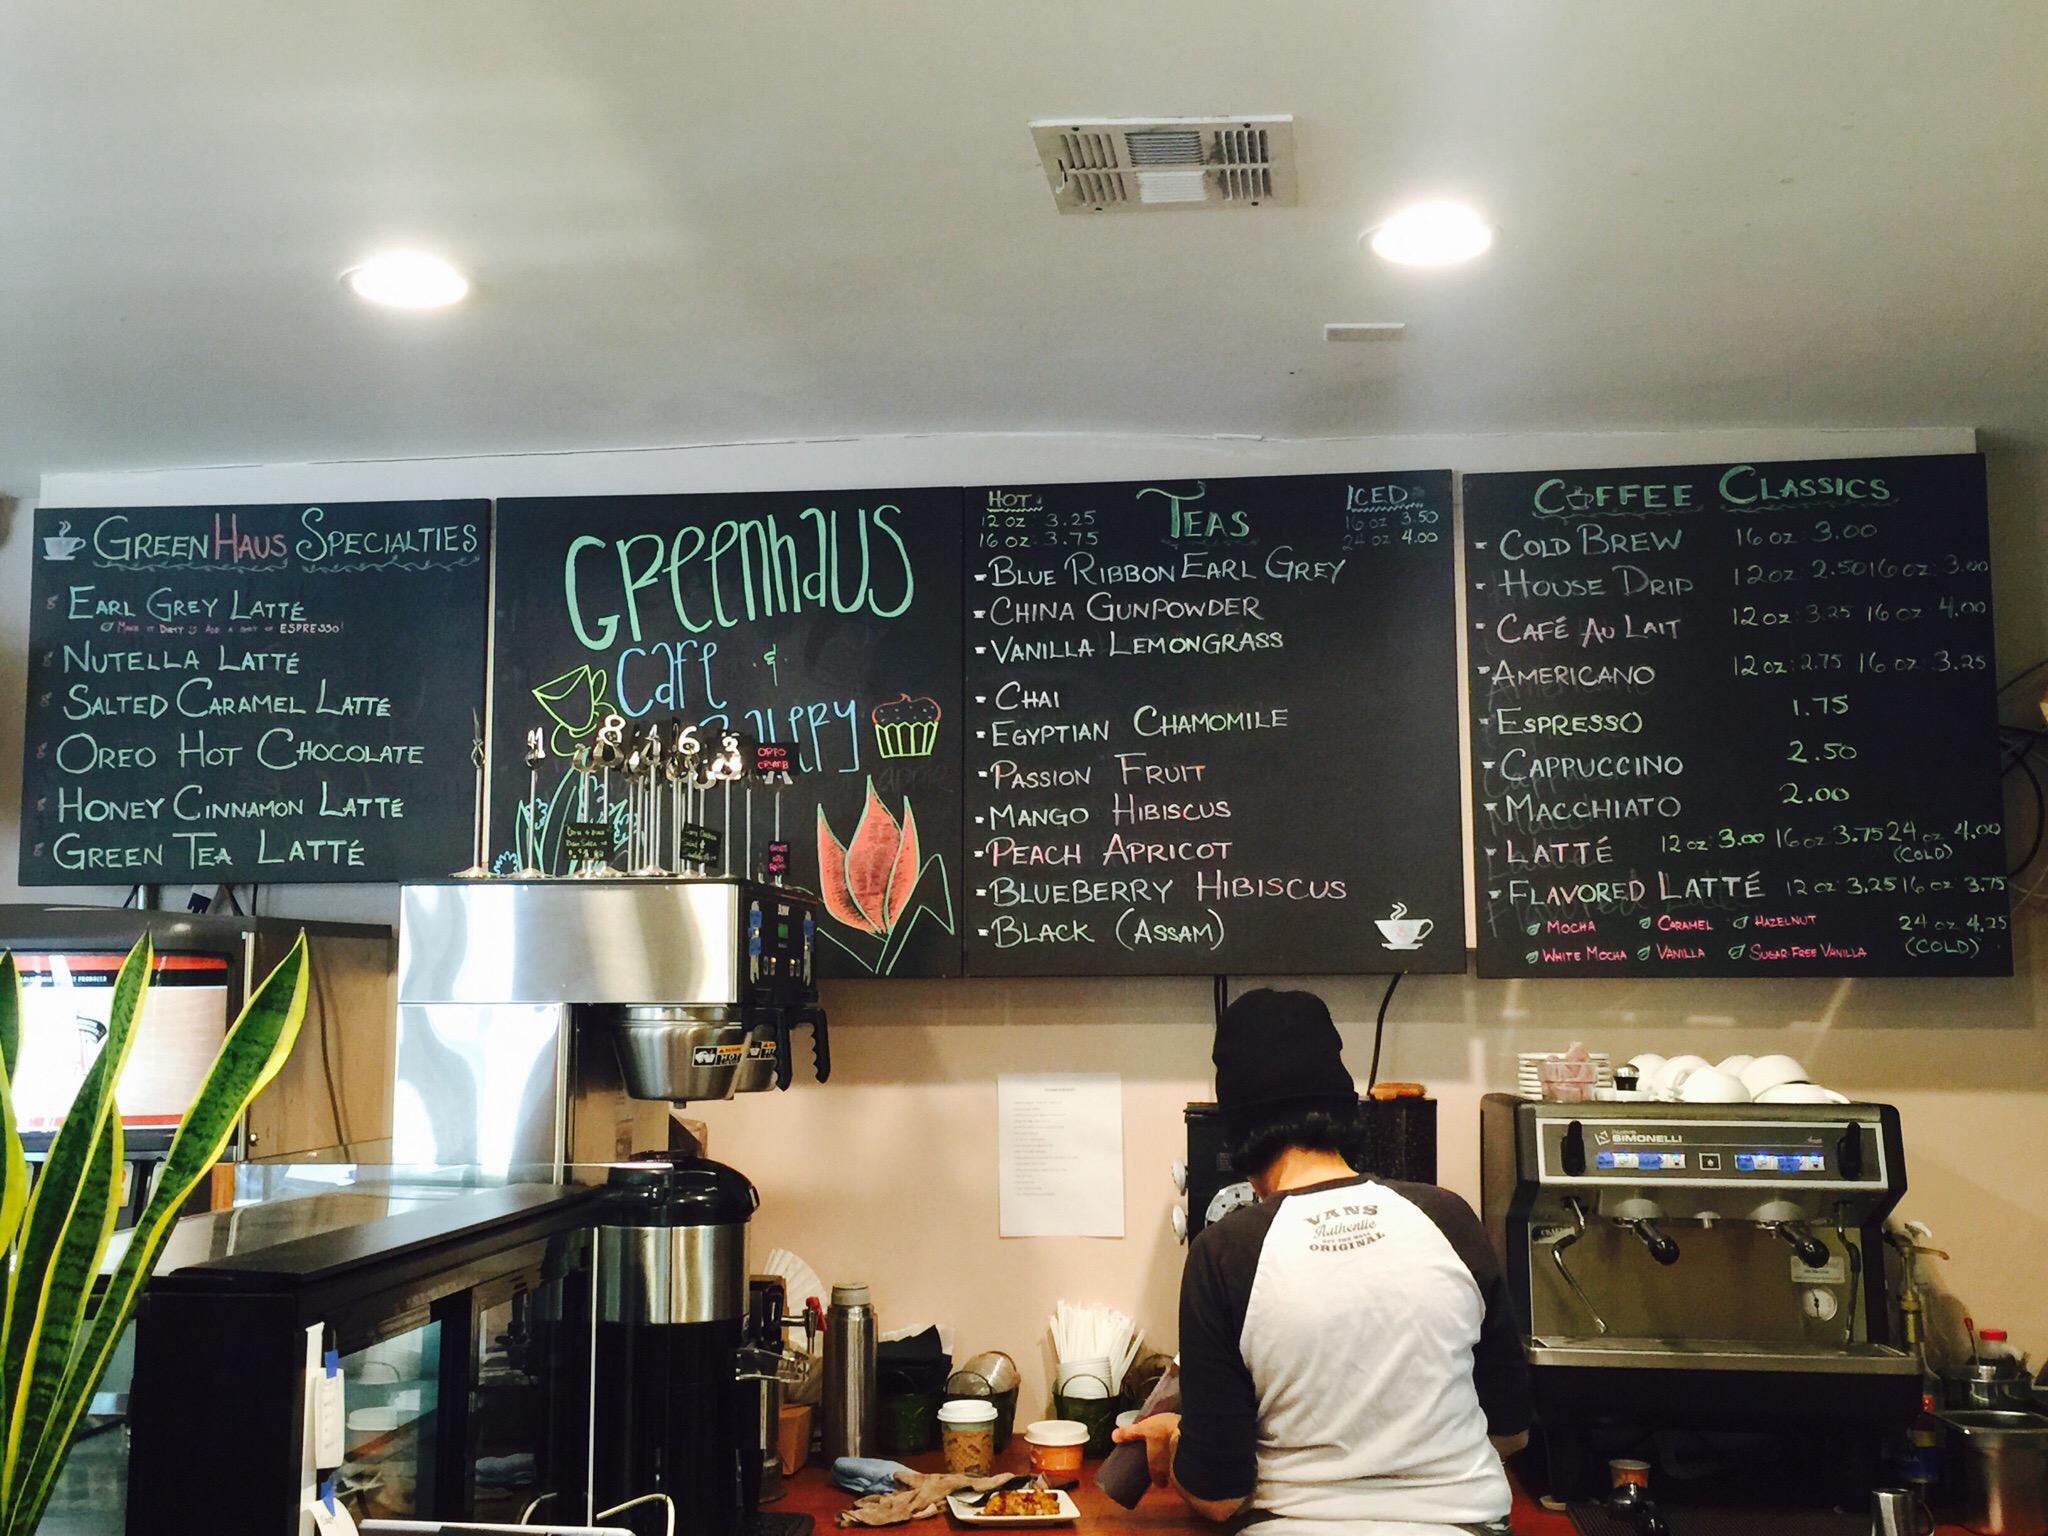 GREENHAUS SPECIALTIES
EARL GREY LATTÉ
ESPRESSO!
NUTELLA LATTÉ
SALTED CARAMEL LATTE
OREO HOT CHOCOLATE
HONEY CINNAMON LATTÉ
GREEN TEA LATTÉ
Greenhaus
Cafe &
HOT
12 oz 3.25
16 oz: 3.75
TEAS
ICED
16 oz 3.50
24 oz 4.00
- BLUE RIBBON EARL GREY
- CHINA GUNPOWDER
- VANILLA LEMONGRASS
- CHAI
- EGYPTIAN CHAMOMILE
- PASSION FRUIT
- MANGO HIBISCUS
- PEACH APRICOT
- BLUEBERRY HIBISCUS
- BLACK (ASSAM)
COFFEE CLASSICS
- COLD BREW 16 oz: 3.00
- HOUSE DRIP 12 oz: 2.50 16 oz: 3.00
- CAFÉ AU LAIT 12 oz: 3.25 16 oz 4.00
- AMERICANO 12 oz: 2.75 16 oz: 3.25
- ESPRESSO 1.75
- CAPPUCCINO 2.50
- MACCHIATO 2.00
- LATTÉ 12 oz: 3.00 16 oz: 3.75 24 oz 4.00
(COLD)
- FLAVORED LATTÉ 12 oz: 3.25 16 oz 3.75
MOCHA CARAMEL HAZELNUT 24 oz 4.25
WHITE MOCHA VANILLA SUGAR FREE VANILLA (COLD)
1
8
4
6
HOT
SIMONELLI
VANS
Authentic
OFF THE WALL
ORIGINAL